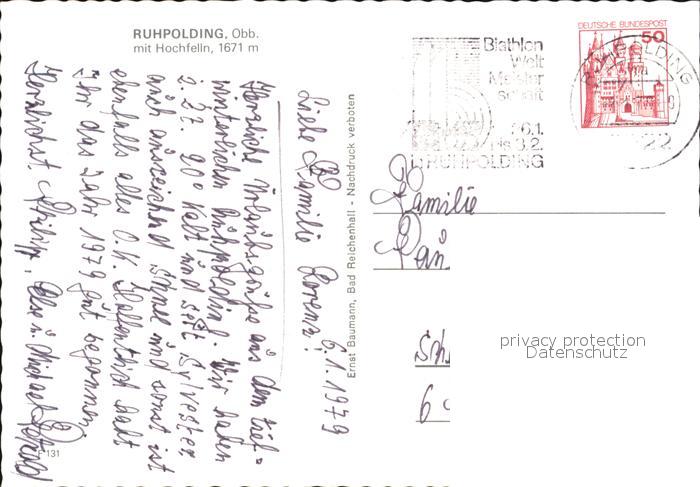 RUHPOLDING, Obb.
mit Hochfelln, 1671 m
6.1.1979
Liebe Familie Lorenz!
Herzliche Urlaubsgrüße aus dem tief=
winterlichen Ruhpolding. Wir haben
z. Zt 20° Kalt und seit Sylvester
auch ausreichend Schnee und sonst ist
ebenfalls alles O.K. Hoffentlich habt
Ihr das Jahr 1979 gut begonnen
Herzlichst
Else u. Michael
F 131
Ernst Baumann, Bad Reichenhall - Nachdruck verboten
Biathlon
Welt
Meister
schaft
6.1.
is 3.2.
RUHPOLDING
DEUTSCHE BUNDESPOST
50
RUHPOLDING
8222
Familie
privacy protection
Datenschutz